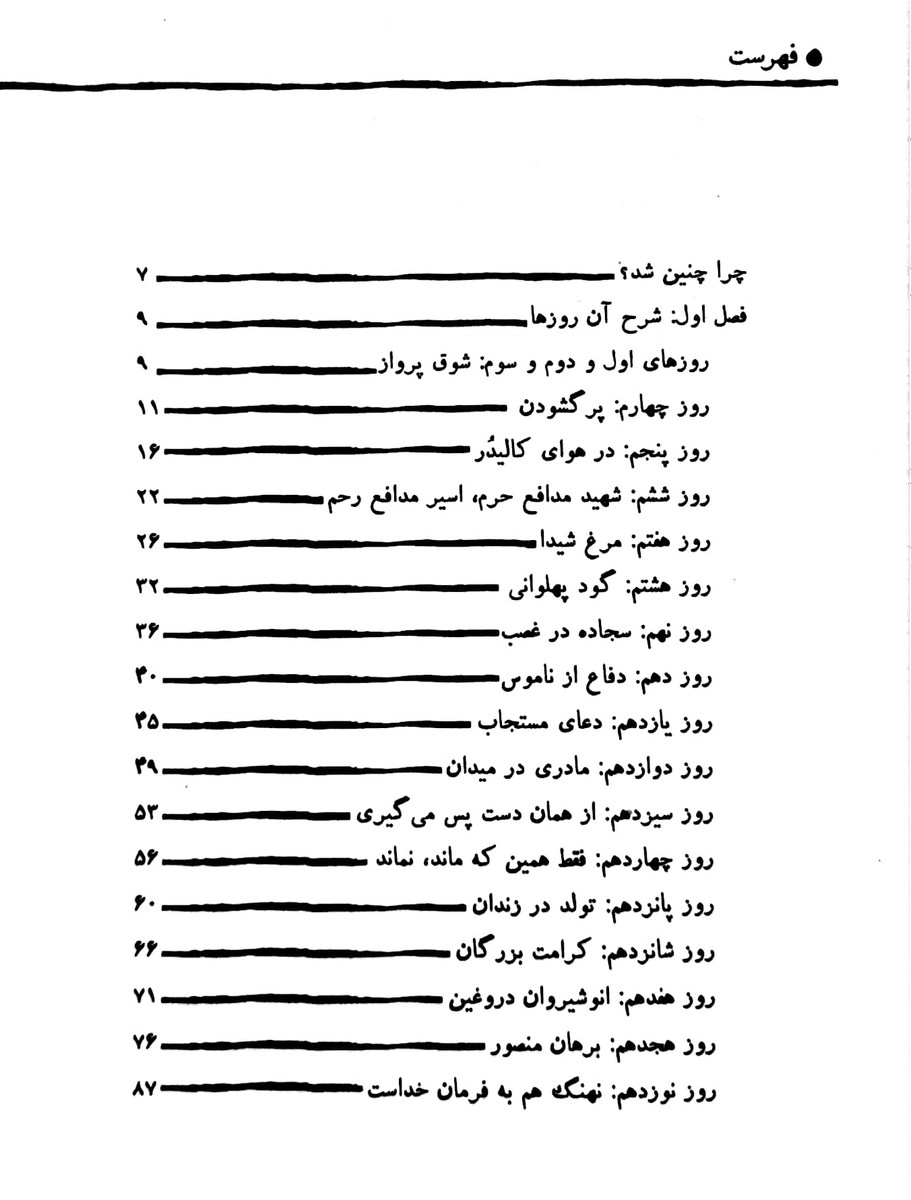 ● فهرست
چرا چنین شد؟ ۷
فصل اول: شرح آن روزها ۹
روزهای اول و دوم و سوم: شوق پرواز ۹
روز چهارم: پر گشودن ۱۱
روز پنجم: در هوای کالیدُر ۱۶
روز ششم: شهید مدافع حرم، اسیر مدافع رحم ۲۲
روز هفتم: مرغ شیدا ۲۶
روز هشتم: گود پهلوانی ۳۲
روز نهم: سجاده در غصب ۳۶
روز دهم: دفاع از ناموس ۴۰
روز یازدهم: دعای مستجاب ۴۵
روز دوازدهم: مادری در میدان ۴۹
روز سیزدهم: از همان دست پس می‌گیری ۵۳
روز چهاردهم: فقط همین که ماند، نماند ۵۶
روز پانزدهم: تولد در زندان ۶۰
روز شانزدهم: کرامت بزرگان ۶۶
روز هفدهم: انوشیروان دروغین ۷۱
روز هجدهم: برهان منصور ۷۶
روز نوزدهم: نهنگ هم به فرمان خداست ۸۷